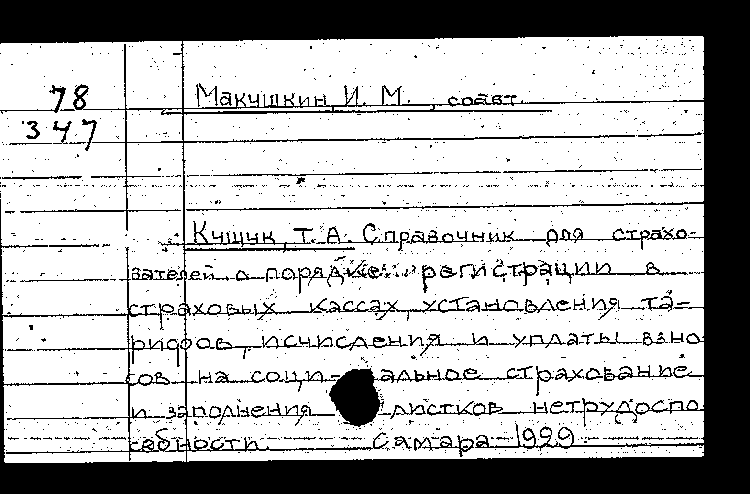 78
347
Макушкин, И. М., соавт.
Кущук, Т. А. Справочник для страхо-
вателей о порядке регистрации в
страховых кассах, установления та-
рифов, исчисления и уплаты взно
сов на соци-альное страхование
и заполнения листков нетрудоспо
собности Самара 1929